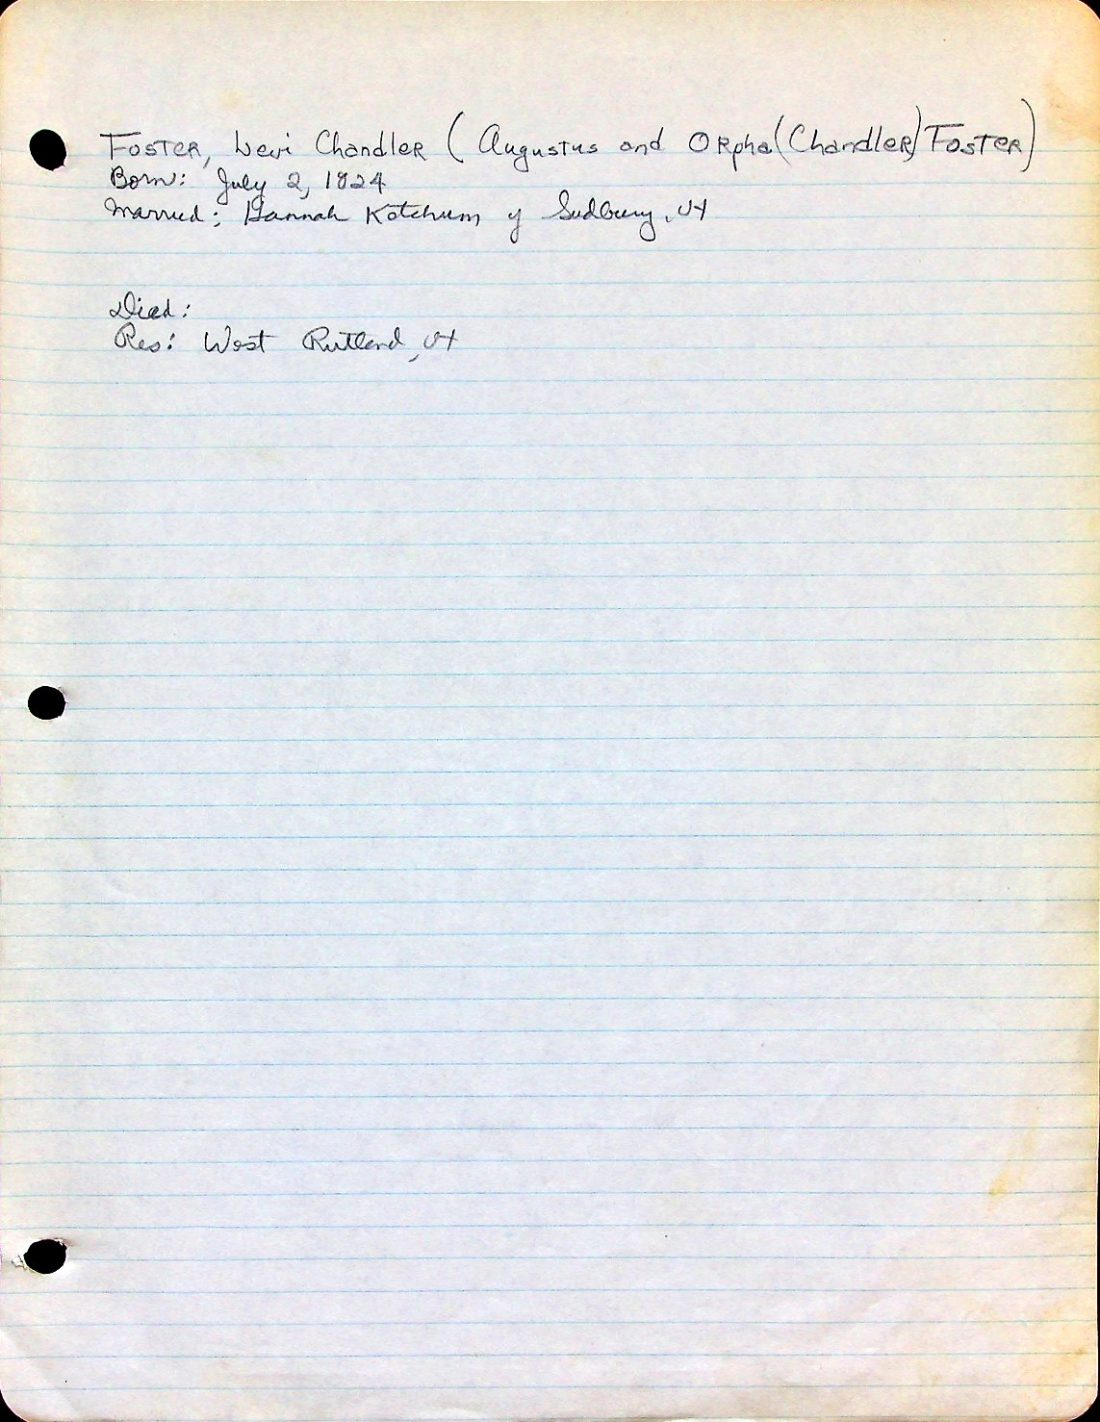 Foster, Levi Chandler (Augustus and Orpha (Chandler) Foster)
Born: July 2, 1824
Married: Hannah Ketchum of Sudbury, Vt
Died:
Res: West Rutland, Vt